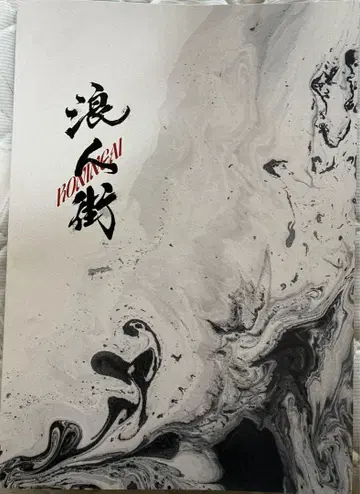 浪人街
RONINGAI